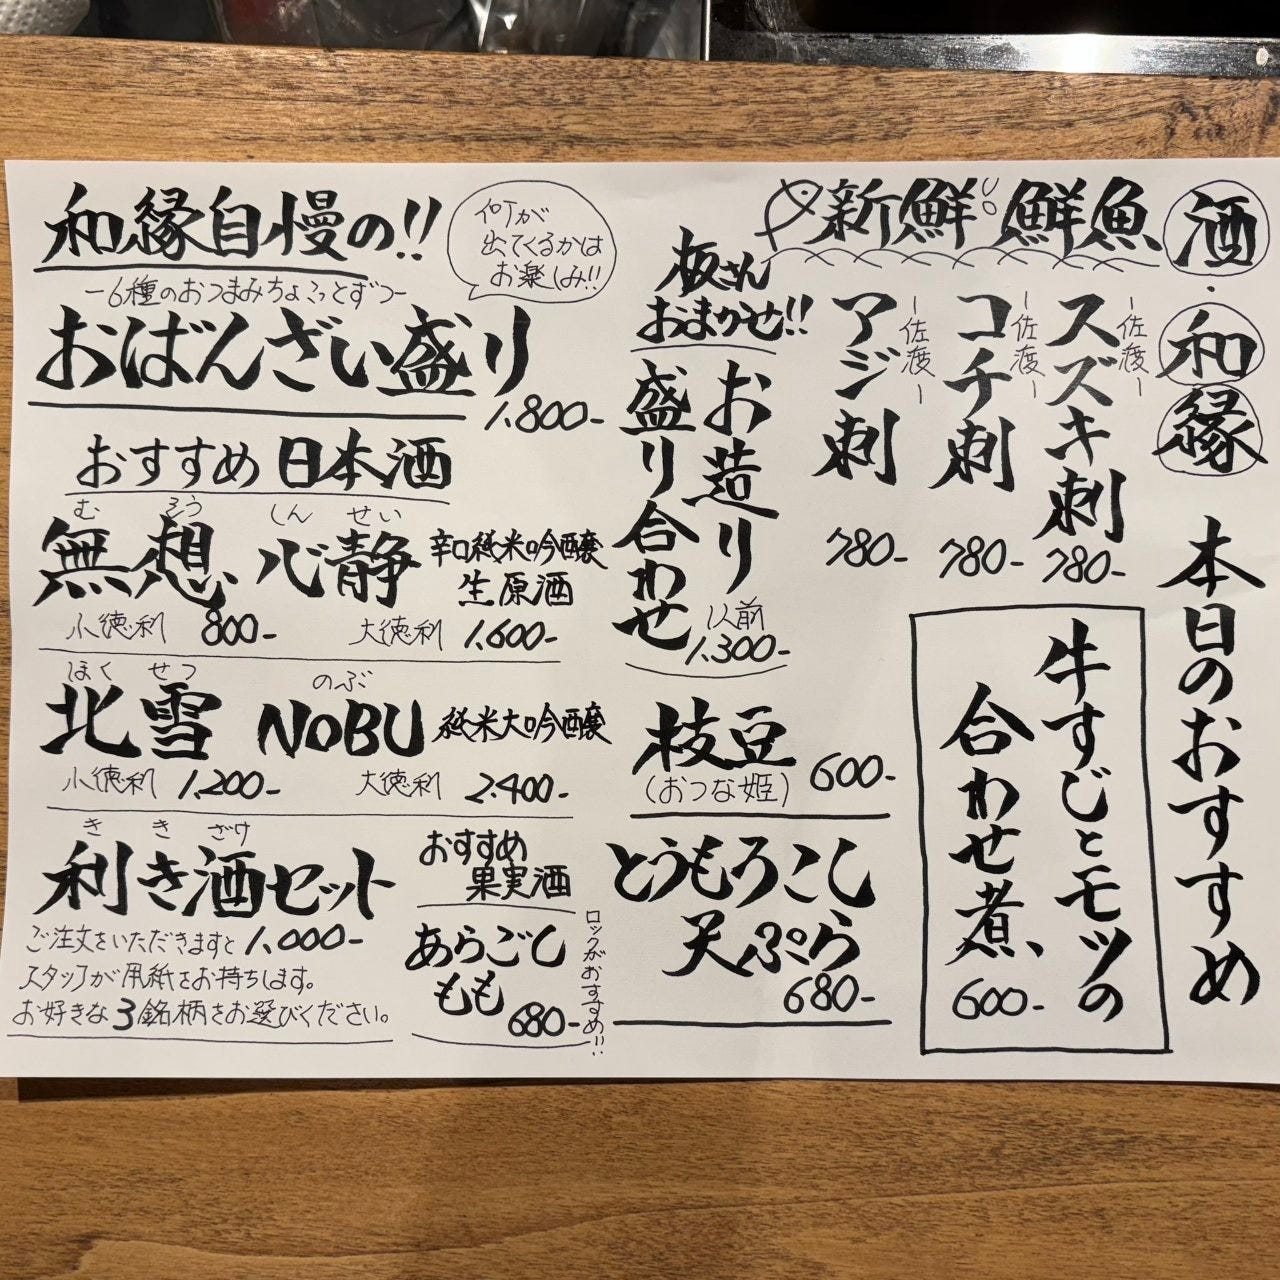 酒・和縁 本日のおすすめ
新鮮!! 鮮魚
スズキ刺
ー佐渡ー
780-
コチ刺
ー佐渡ー
780-
アジ刺
ー佐渡ー
780-
牛すじとモツの
合わせ煮
600-
板さん
おまかせ!!
お造り
盛り合わせ
1人前
1,300-
枝豆
(おつな姫)
600-
とうもろこし
天ぷら
680-
和縁自慢の!!
何が
出てくるかは
お楽しみ!!
ー6種のおつまみちょこっとずつー
おばんざい盛り
1,800-
おすすめ日本酒
む そう しん せい
無想 心静
辛口純米吟醸
生原酒
小徳利 800-
大徳利 1,600-
ほく せつ のぶ
北雪 NOBU 純米大吟醸
小徳利 1,200-
大徳利 2,400-
き き ざけ
利き酒セット
ご注文をいただきますと 1,000-
スタッフが用紙をお持ちします。
お好きな3銘柄をお選びください。
おすすめ
果実酒
あらごし
もも
680-
ロックがおすすめ!!